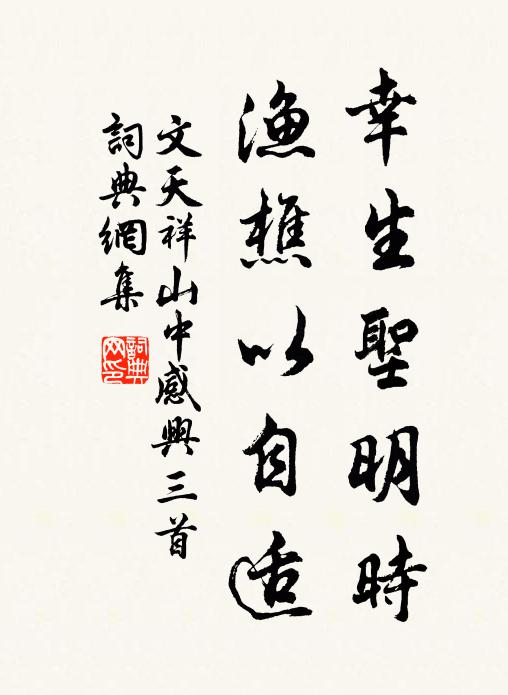 幸生聖明時
漁樵以自適
文天祥山中感興三首
詞典網集
詞典網印